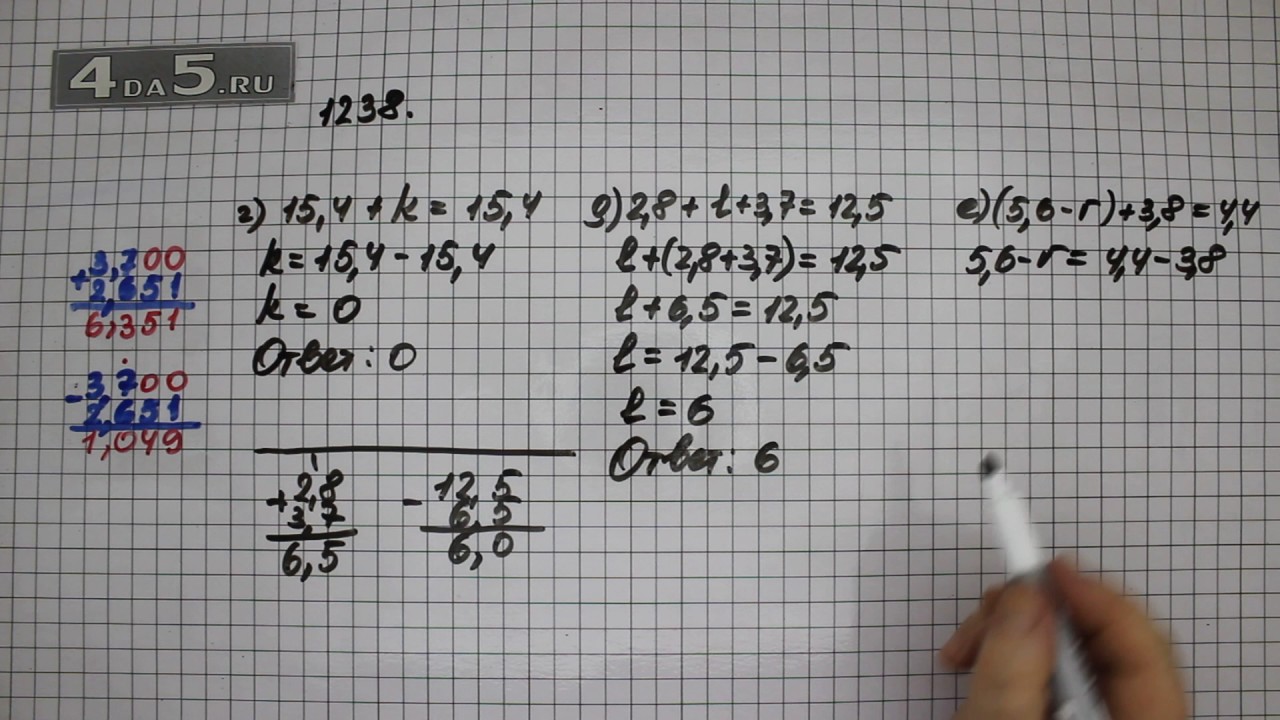 4DA5.RU
1238.
г) 15,4 + k = 15,4
k = 15,4 - 15,4
k = 0
Ответ: 0
д) 2,8 + l + 3,7 = 12,5
l + (2,8 + 3,7) = 12,5
l + 6,5 = 12,5
l = 12,5 - 6,5
l = 6
Ответ: 6
е) (5,6 - r) + 3,8 = 4,4
5,6 - r = 4,4 - 3,8
+ 3,700
2,651
6,351
- 3,700
2,651
1,049
1
+ 2,8
3,7
6,5
- 12,5
6,5
6,0